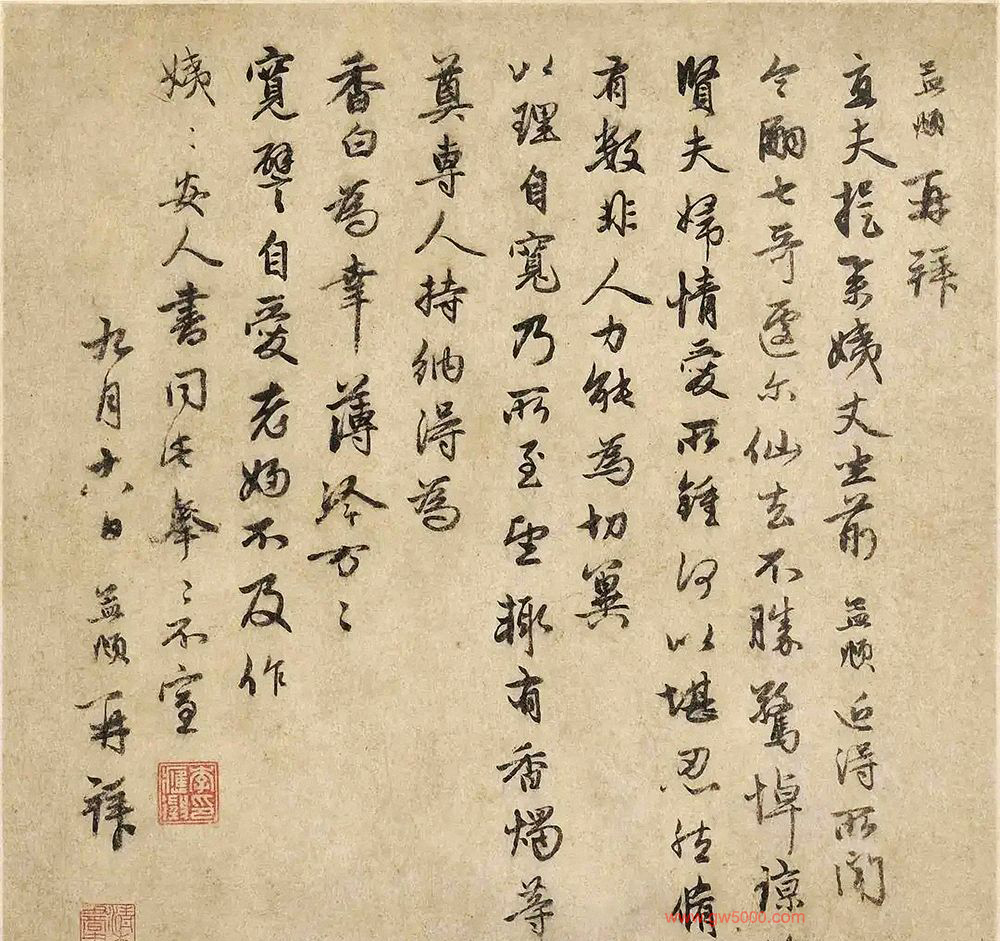 益順再拜
宜夫提舉姨丈坐前 益順近得所聞
令嗣七哥遽尔仙去不勝驚悼諒
賢夫婦情愛所鍾何以堪忍然脩
有數非人力能為切冀
以理自寬乃所至望輙有香燭等
奠專人持納得為
香白為幸薄冷万〻
寬譬自愛老婦不及作
姨〻安人書同此拳〻不宣
九月十八日 益順再拜
www.gw5000.com